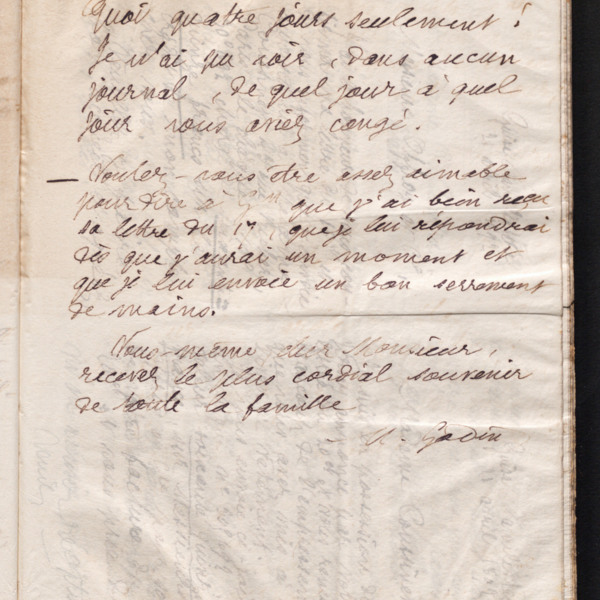 Quoi quatre jours seulement !
Je n'ai pu voir, dans aucun
journal, de quel jour à quel
jour vous aviez congé.
— Voulez-vous être assez aimable
pour dire à que j'ai bien reçu
sa lettre du 17, que je lui répondrai
dès que j'aurai un moment et
que je lui envoie un bon serrement
de mains.
Vous-même cher Monsieur,
recevez le plus cordial souvenir
de toute la famille
Godin